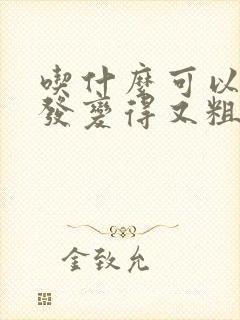 喫什麼可以
發變得又粗
金致允